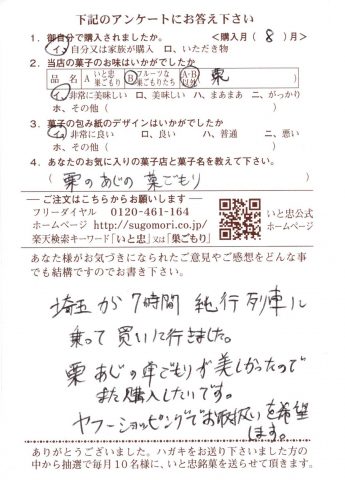 下記のアンケートにお答え下さい
1. 御自分で購入されましたか。 <購入月( 8 )月>
イ、自分又は家族が購入 ロ、いただき物
2. 当店の菓子のお味はいかがでしたか
品 名 A いと忠巣ごもり B フルーツな巣ごもりたち A・B以外 栗
イ、非常に美味しい ロ、美味しい ハ、まあまあ ニ、がっかり
ホ、その他( )
3. 菓子の包み紙のデザインはいかがでしたか
イ、非常に良い ロ、良い ハ、普通 ニ、悪い
ホ、その他( )
4. あなたのお気に入りの菓子店と菓子名を教えて下さい。
( 栗のあじの巣ごもり )
ご注文はこちらからお願いします
フリーダイヤル 0120-461-164
ホームページ http://sugomori.co.jp/
楽天検索キーワード「いと忠」又は「巣ごもり」
いと忠公式
ホームページ
あなた様がお気づきになられたご意見やご感想をどんな事
でも結構ですのでお書き下さい。
埼玉から7時間 純行列車に
乗って買いに行きました。
栗あじの巣ごもりが美しかったので
また購入したいです。
ヤフーショッピングでお取扱いを希望
します。
ありがとうございました。ハガキをお送り下さいました方の
中から抽選で毎月10名様に、いと忠銘菓を送らせて頂きます。